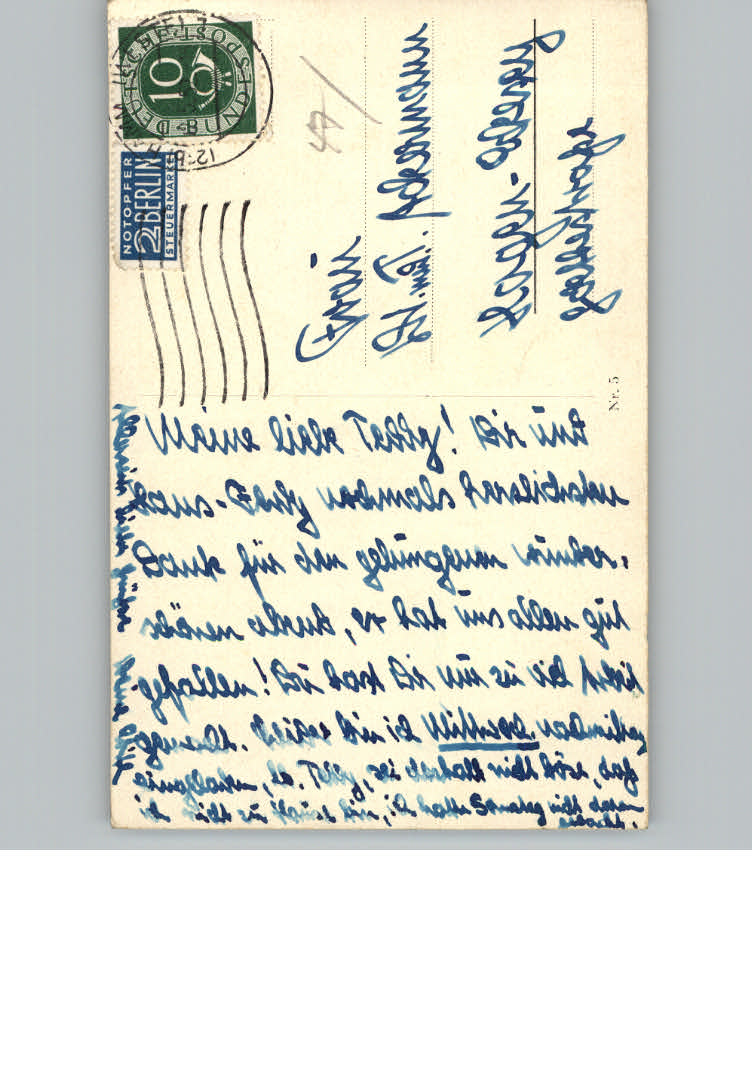 DEUTSCHE BUNDESPOST
10
NOTOPFER
2 BERLIN
STEUERMARKE
47/
Frau
Ackermann
Hagen-
Nr. 5
Meine liebe Teddy! Dir und
Hans- nochmals herzlichsten
Dank für den gelungenen wunder-
schönen Abend, er hat uns allen gut
gefallen! Du hast Dir nur zu viel Arbeit
gemacht. Leider bin ich Mittwoch nachmittag
eingeladen, sei deshalb nicht böse, daß
ich nicht zu Hause bin, ich hatte Samstag nicht daran
gedacht.